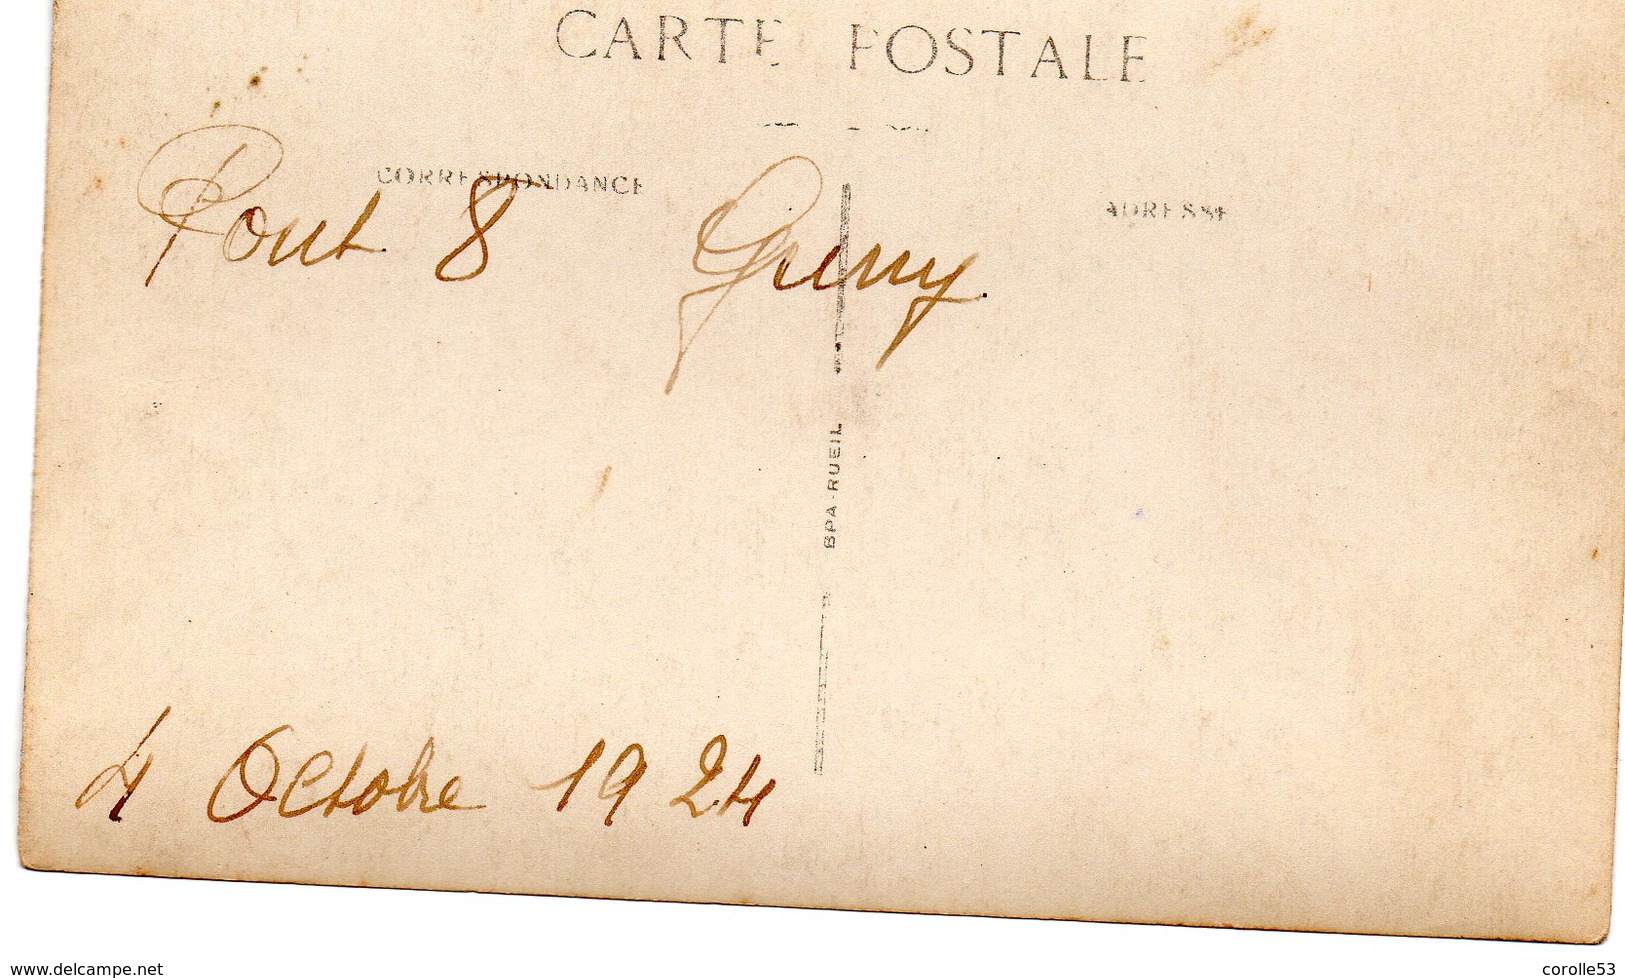 CARTE POSTALE
CORRESPONDANCE
ADRESSE
Pont 8 Gieny.
BPA-RUEIL
4 Octobre 1924
www.delcampe.net
corolle53